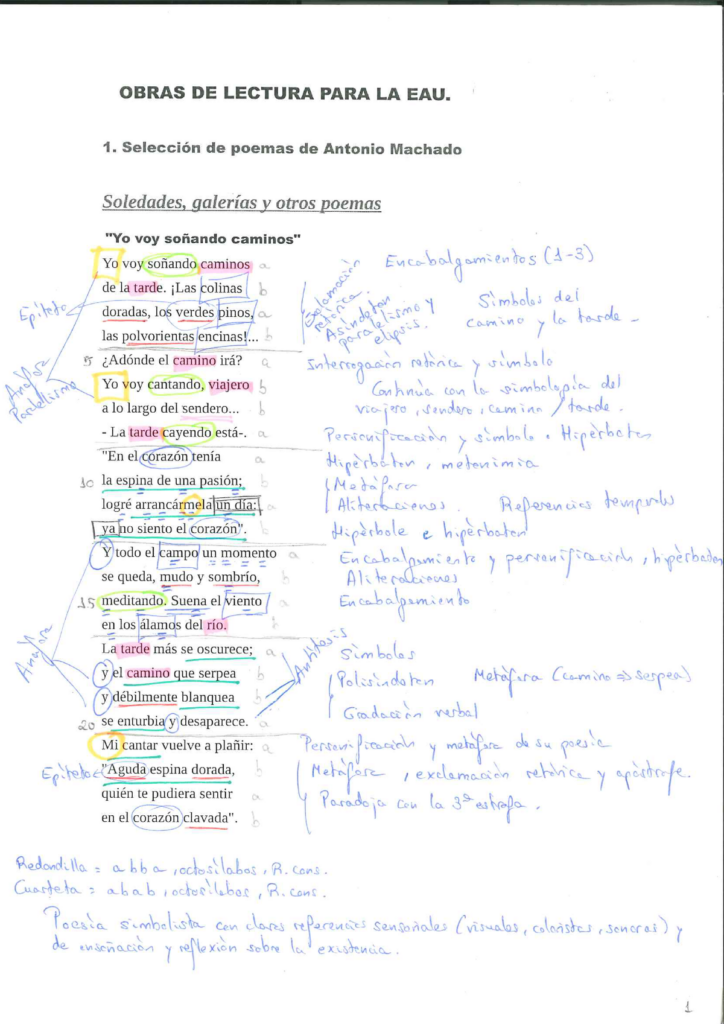 OBRAS DE LECTURA PARA LA EAU.
1. Selección de poemas de Antonio Machado
Soledades, galerías y otros poemas
"Yo voy soñando caminos"
Yo voy soñando caminos a
de la tarde. ¡Las colinas b
doradas, los verdes pinos, a
las polvorientas encinas!... b
5 ¿Adónde el camino irá? a
Yo voy cantando, viajero b
a lo largo del sendero... b
- La tarde cayendo está-. a
"En el corazón tenía a
10 la espina de una pasión; b
logré arrancármela un día: a
ya no siento el corazón". b
Y todo el campo un momento a
se queda, mudo y sombrío, b
15 meditando. Suena el viento a
en los álamos del río. b
La tarde más se oscurece; a
y el camino que serpea b
y débilmente blanquea b
20 se enturbia y desaparece. a
Mi cantar vuelve a plañir: a
"Aguda espina dorada, b
quién te pudiera sentir a
en el corazón clavada". b
Epíteto
Anáfora
Paralelismo
Anáfora
Epítetos
Exclamación
retórica.
Asíndeton
paralelismo y
elipsis.
Encabalgamientos (1-3)
Símbolos del
camino y la tarde -
Interrogación retórica y símbolo
Continúa con la simbología del
viajero, sendero, camino / tarde.
Personificación y símbolo. Hipérbaton
Hipérbaton, metonimia
Metáfora
Aliteraciones. Referencias temporales
Hipérbole e hipérbaton
Encabalgamiento y personificación, hipérbaton
Aliteraciones
Encabalgamiento
Antítesis
Símbolos
Polisíndeton Metáfora (camino => serpea)
Gradación verbal
Personificación y metáfora de su poesía
Metáfora, exclamación retórica y apóstrofe.
Paradoja con la 3ª estrofa.
Redondilla = abba, octosílabos, R. cons.
Cuarteta = abab, octosílabos, R. cons.
Poesía simbolista con claras referencias sensoriales (visuales, coloristas, sonoras) y
de ensoñación y reflexión sobre la existencia.
1